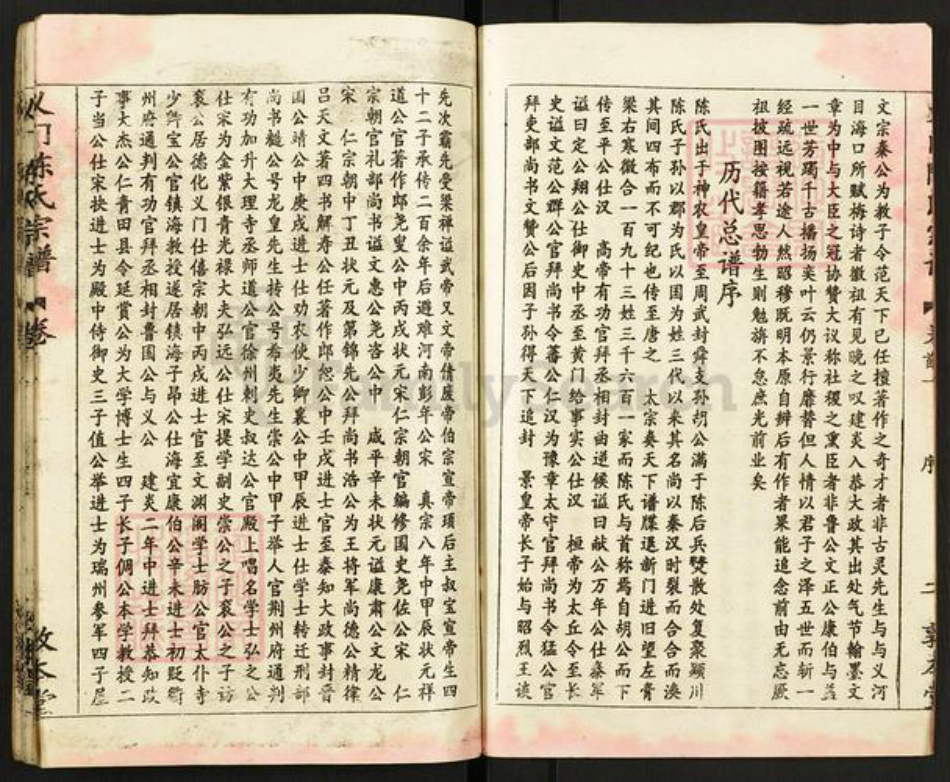 文宗秦公为教子令范天下已任擅著作之奇才者非古灵先生与与义河
目海口所赋梅诗者徽祖有见晚之叹建炎入恭大政其出处气节翰墨文
章为中与大臣之冠协赞大议称社稷之熏臣者非鲁公文正公康伯与
一世芳躅千古播扬奕叶云仍景行靡替但人情以君子之泽五世而斩一
经疏远视若途人然昭穆既明本原自辨后有作者果能追念前由无忘厥
祖披图按籍孝思勃生则勉旃不怠庶光前业矣
历代总谱序
陈氏出于神农皇帝至周武封舜支孙胡公满于陈后兵燹散处复聚颍川
陈氏子孙以郡为氏以国为姓三代以来其名尚以秦汉时裂而合合而涣
其间四布而不可纪也传至唐之 太宗奏天下谱牒退新门进旧望左膏
梁右寒微合一百九十三姓三千六百一家而陈氏与首称焉自胡公而下
传至平公仕汉 高帝有功官拜丞相封曲逆候谥曰献公万年公仕秦军
谥曰定公翔公仕御史中丞至黄门给事实公仕汉 桓帝为太丘令至长
史谥文范公群公官拜尚书令蕃公仁汉为豫章太守官拜尚书令猛公官
拜吏部尚书文赞公后因子孙得天下追封 景皇帝长子始与昭烈王谈
先次霸先受梁禅谥武帝又文帝倩废帝伯宗宣帝顼后主叔宝宣帝生四
十二子承传二百余年后避难河南彭年公宋 真宗八年中甲辰状元祥
道公官著作郎尧叟公中丙戌状元宋仁宗朝官编修国史尧佐公宋 仁
宗朝官礼部尚书谥文惠公尧咨公中 咸平辛未状元谥康肃公文龙公
宋 仁宗朝中丁丑状元及第锦先公拜尚书浩公为王将军尚德公精律
吕天文著四书解寿公任著作郎恕公中壬戌进士官至秦知大政事封晋
国公靖公中庚戌进士仕劝农使少卿襄公中甲辰进士仕学士转迁刑部
尚书魑公号龙皇先生抟公号希夷先生崇公中甲子举人官荆州府通判
有功加升大理寺丞师道公官徐州刺史叔达公官殿上唱名学士弘之公
仕宋为金紫银青光禄大夫弘远公仕宋提学副史崇公之子衮公之子访
衮公居德化义门仕僖宗朝中丙戌进士官至文渊阁学士肪公官太仆寺
少卿宝公官镇海教授遂居镇海子昂公仕海宜康伯公辛未进士初贬衢
州府通判有功官拜丞相封鲁国公与义公 建炎二年中进士拜恭知政
事大杰公仁青田县令延赏公为大学博士生四子长子倜公本学教授二
子当公仕宋抉进士为殿中侍御史三子值公举进士为瑞州参军四子
义门陈氏宗谱
卷
敦本堂
序
二
FamilySearch